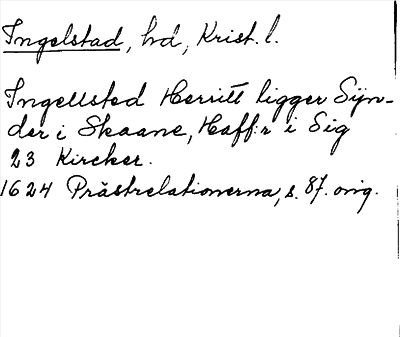 Ingelstad, hd, Krist. l.
Ingellsted Herritt ligger Sÿn-
der i Skaane, Haff:r i Sig
23 Kircker.
1624 Prästrelationerna, s. 87. orig.